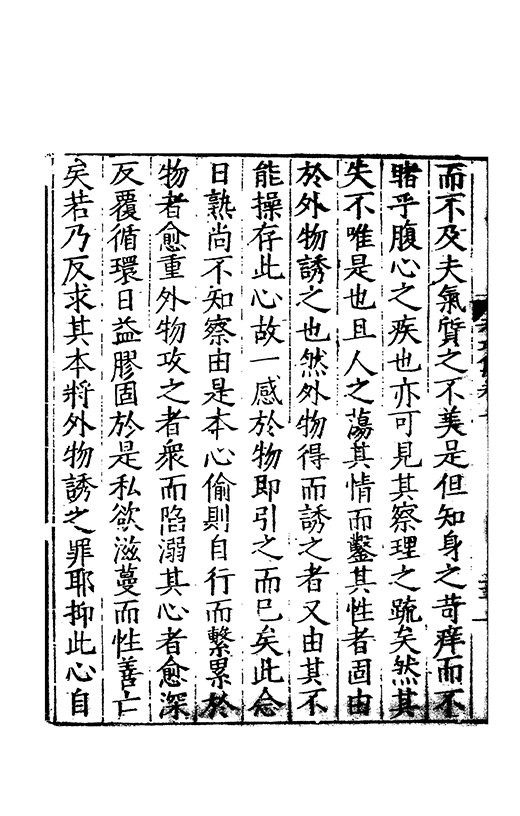 而不及夫氣質之不美是但知身之苛痒而不
睹乎腹心之疾也亦可見其察理之疏矣然其
失不唯是也且人之蕩其情而鑿其性者固由
於外物誘之也然外物得而誘之者又由其不
能操存此心故一感於物即引之而已矣此念
日熟尚不知察由是本心偷則自行而繫累於
物者愈重外物攻之者衆而陷溺其心者愈深
反覆循環日益膠固於是私欲滋蔓而性善亡
矣若乃反求其本將外物誘之罪耶抑此心自